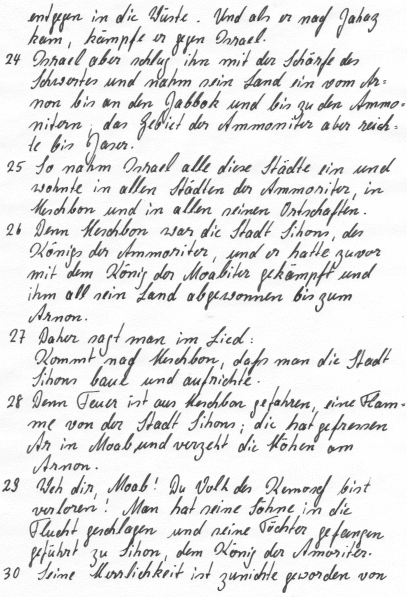 entgegen in die Wüste. Und als er nach Jahaz
kam, kämpfe er gegen Israel.
24 Israel aber schlug ihn mit der Schärfe des
Schwertes und nahm sein Land ein vom Ar=
non bis an den Jabbok und bis zu den Ammo=
nitern; das Gebiet der Ammoniter aber reich=
te bis Jaser.
25 So nahm Israel alle diese Städte ein und
wohnte in allen Städten der Ammoriter, in
Heschbon und in allen seinen Ortschaften.
26 Denn Heschbon war die Stadt Sihons, des
Königs der Ammoriter, und er hatte zuvor
mit dem König der Moabiter gekämpft und
ihm all sein Land abgewonnen bis zum
Arnon.
27 Daher sagt man im Lied:
Kommt nach Heschbon, daß man die Stadt
Sihons baue und aufrichte.
28 Denn Feuer ist aus Heschbon gefahren, eine Flam=
me von der Stadt Sihons; die hat gefressen
Ar in Moab und verzehrt die Höhen am
Arnon.
29 Weh dir, Moab! Du Volk des Kemosch bist
verloren! Man hat seine Söhne in die
Flucht geschlagen und seine Töchter gefangen
geführt zu Sihon, dem König der Amoriter.
30 Seine Herrlichkeit ist zunichte geworden von